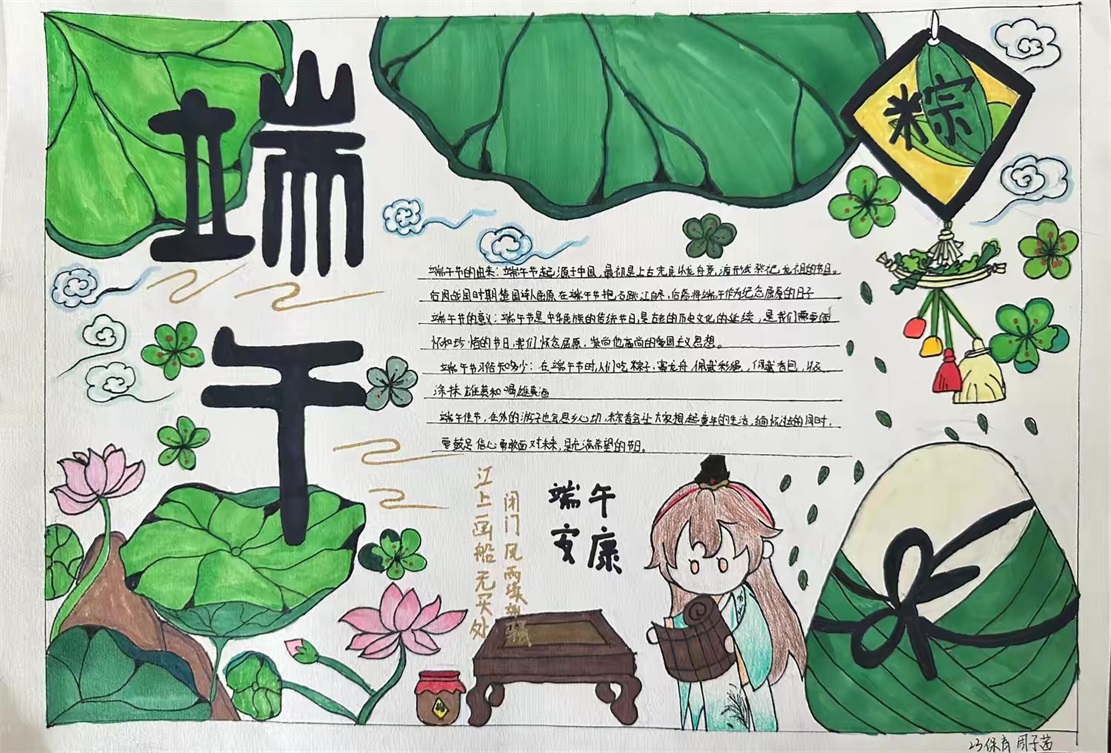 端午
粽
端午节的由来：端午节起源于中国，最初是上古先民以龙舟竞渡形式祭祀龙祖的节日。
因战国时期楚国诗人屈原在端午节抱石跳江自尽，后为将端午作为纪念屈原的日子
端午节的意义：端午节是中华民族的传统节日，是古老的历史文化的延续，是我们需要
怀和珍惜的节日，我们怀念屈原，崇尚他高尚的爱国主义思想。
端午节习俗知多少：在端午节时，人们吃粽子，赛龙舟，佩戴彩绳，佩戴香囊，以及
涂抹雄黄和喝雄黄酒
端午佳节，在外的游子也会思乡心切，粽香会让大家想起童年的生活，缅怀过往的同时，
更鼓足信心勇敢面对未来，是充满希望的节日。
江上画船无买处
闭门风雨
端午
安康
23保育 周子茜